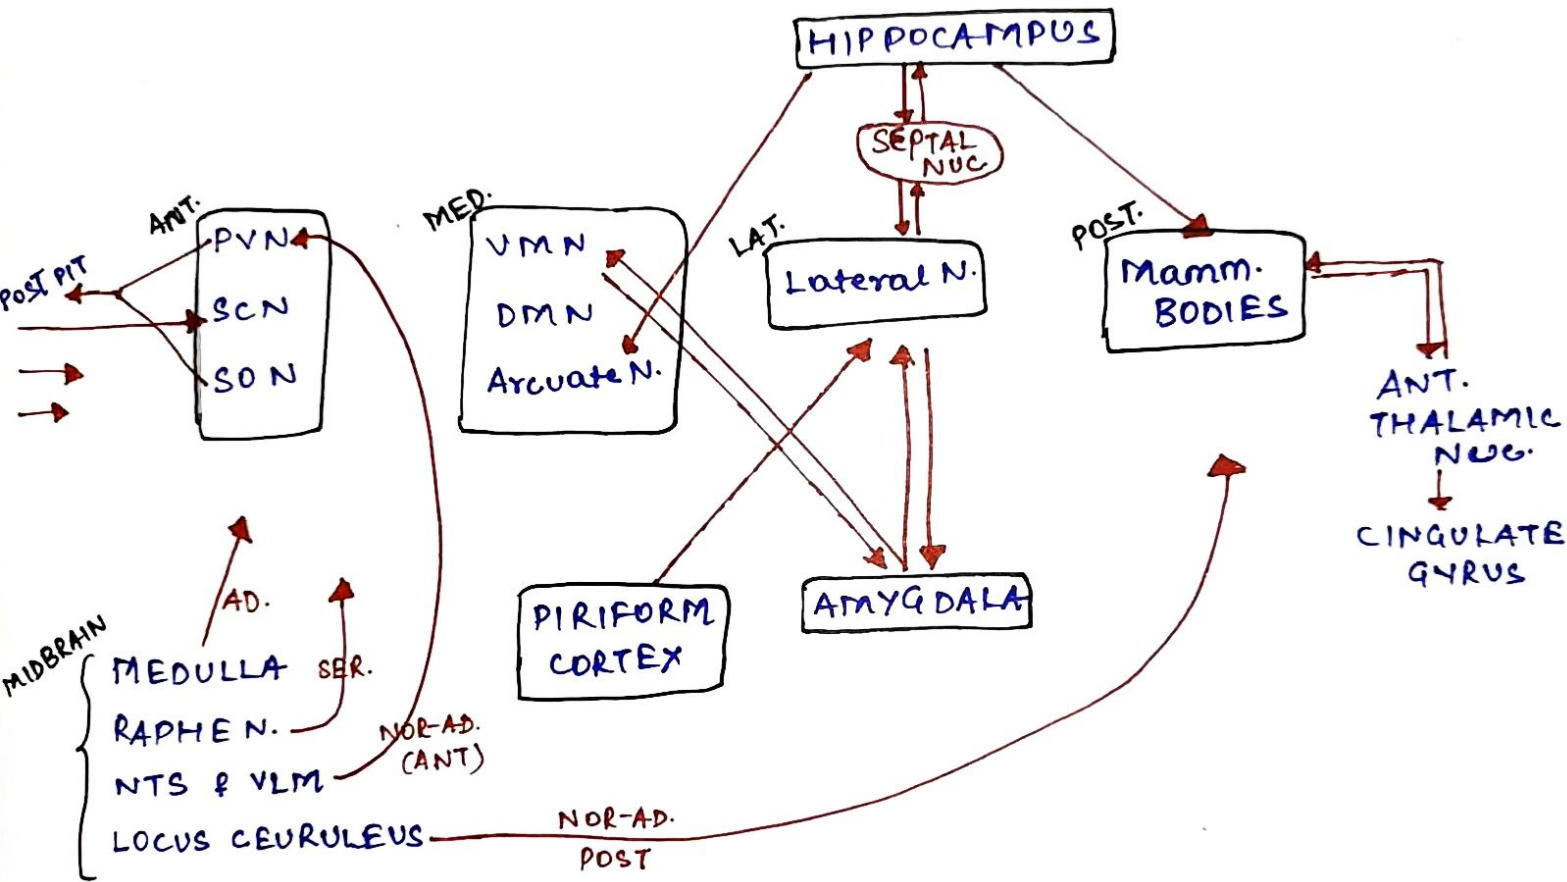 HIPPOCAMPUS
SEPTAL
NUC
ANT.
PVN
SCN
SON
POST PIT
MED.
VMN
DMN
Arcuate N.
LAT.
Lateral N.
POST.
Mamm.
BODIES
ANT.
THALAMIC
NUC.
CINGULATE
GYRUS
PIRIFORM
CORTEX
AMYGDALA
MIDBRAIN
AD.
MEDULLA SER.
RAPHE N.
NOR-AD.
(ANT)
NTS & VLM
LOCUS CEURULEUS
NOR-AD.
POST